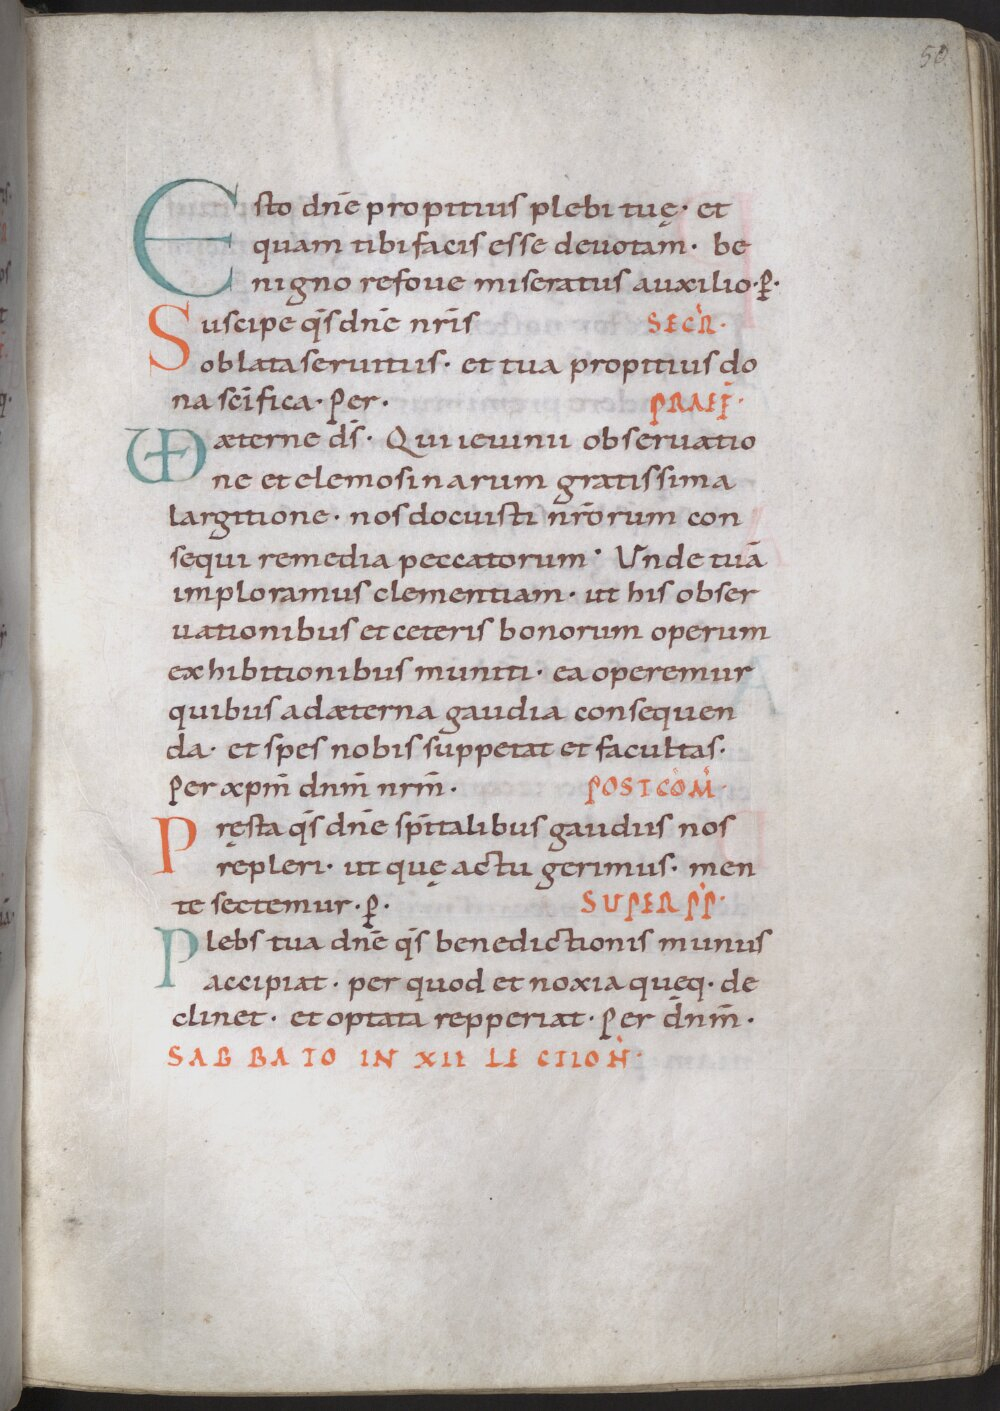 50
Esto dn̄e propitius plebi tuę· et
quam tibi facis esse devotam· be
nigno refove miseratus auxilio·p̲·
Suscipe q̄s dn̄e nr̄is SECR̄·
oblata servitiis· et tua propitius do
na sc̄ifica· Per· PRAEF̄·
VD æterne ds̄· Qui ieiunii observatio
ne et elemosinarum gratissima
largitione· nos docuisti nr̄orum con
sequi remedia peccatorum· Unde tuā
imploramus clementiam· ut his obser
vationibus et ceteris bonorum operum
exhibitionibus muniti· ea operemur
quibus ad æterna gaudia consequen
da· et spes nobis suppetat et facultas·
Per xpm̄ dnm̄ nrm̄· POSTCOM̄·
Pręsta q̄s dn̄e spītalibus gaudiis nos
repleri· ut quę actu gerimus· men
te sectemur·p̲· SUPER PP̄·
Plebs tua dn̄e q̄s benedictionis munus
accipiat· per quod et noxia queq· de
clinet· et optata repperiat· Per dn̄m̄·
SABBATO IN XII LECTION̄·